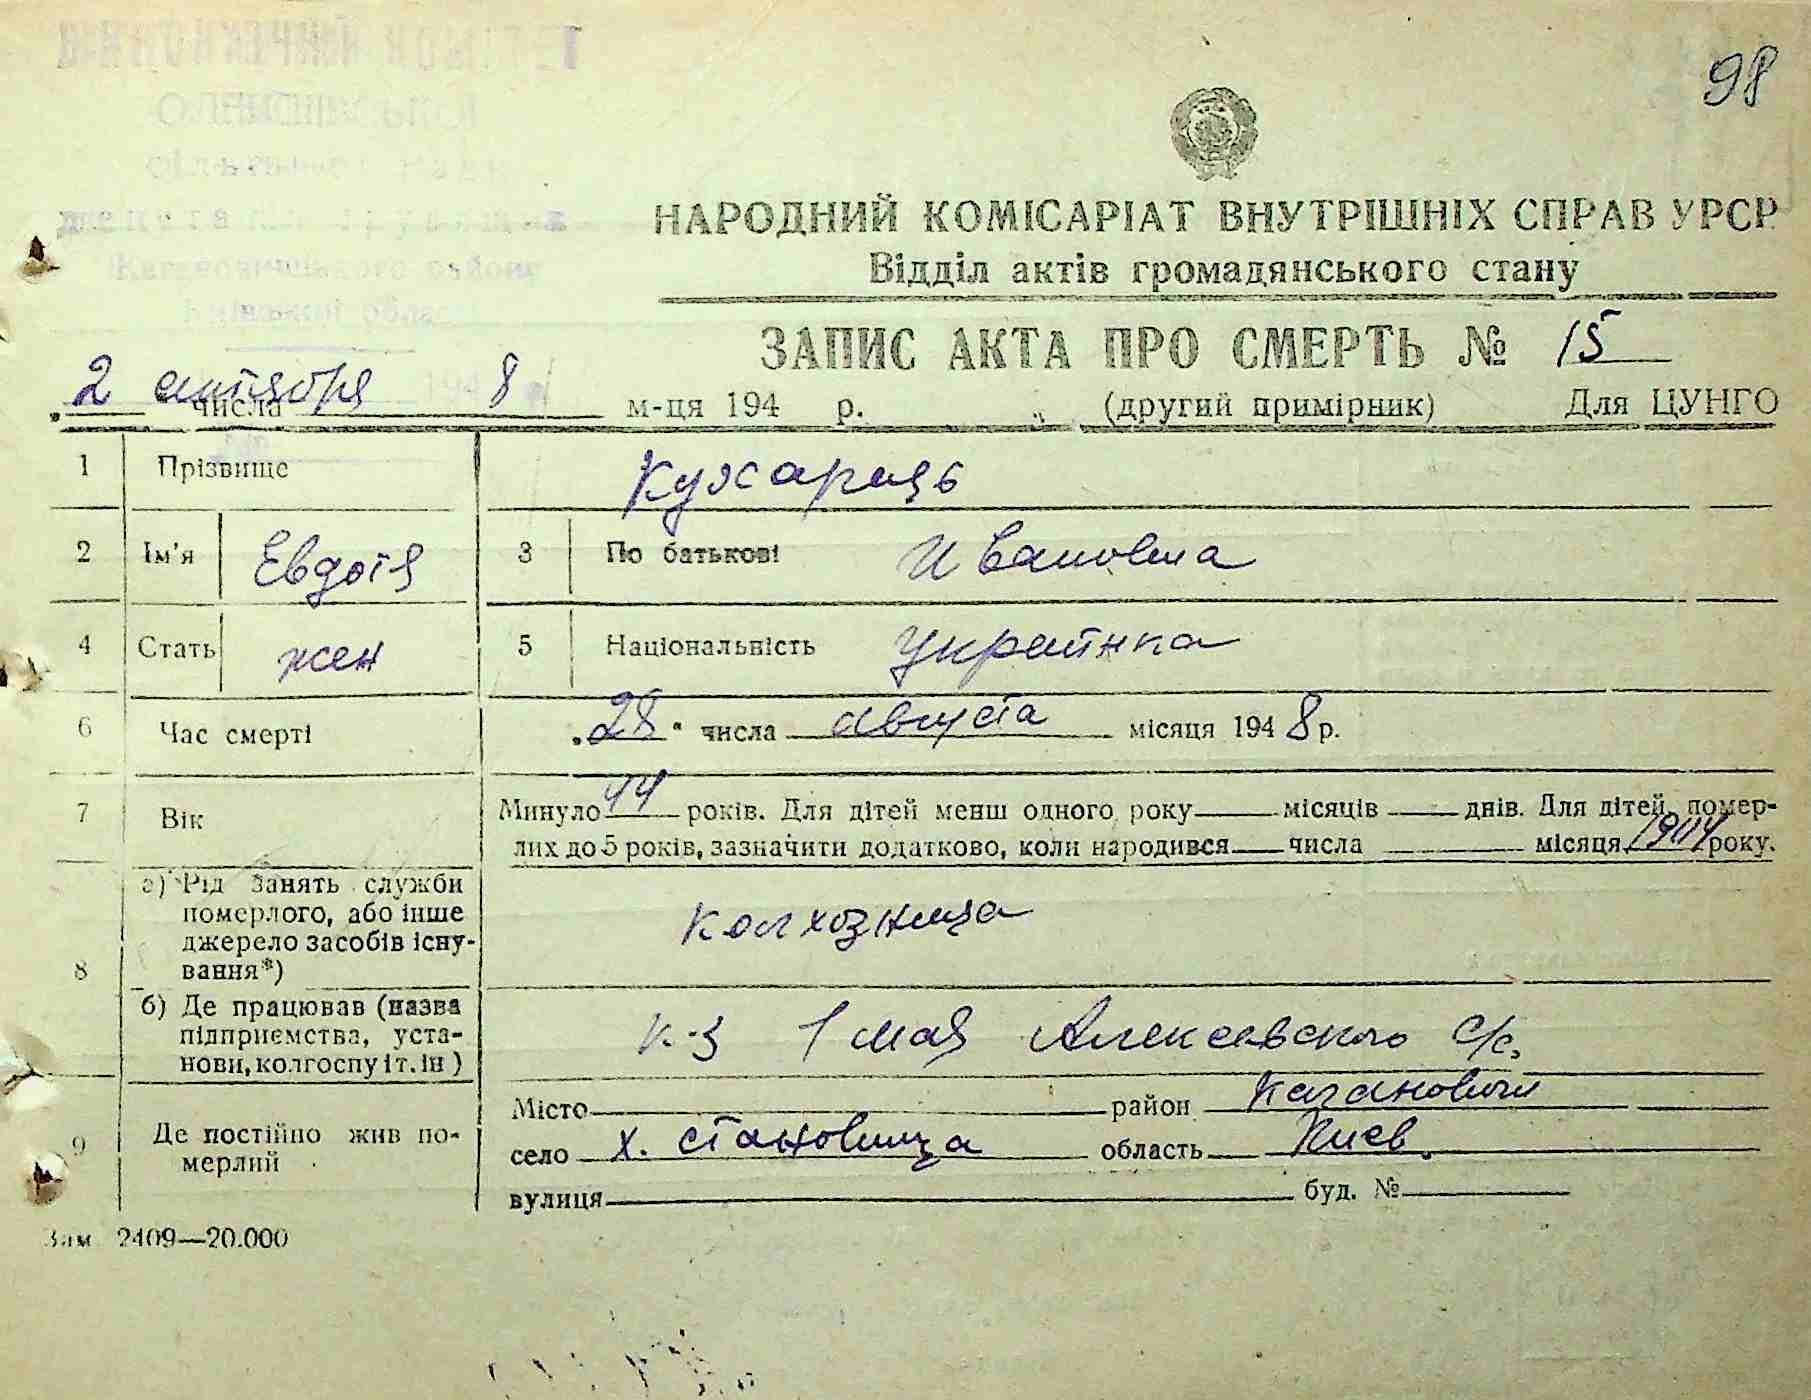 98
НАРОДНИЙ КОМІСАРІАТ ВНУТРІШНІХ СПРАВ УРСР
Відділ актів громадянського стану
ЗАПИС АКТА ПРО СМЕРТЬ № 15
2 сентября 8
числа м-ця 194 р. (другий примірник) Для ЦУНГО
1 Прізвище Кухарець
2 Ім'я Евдотя 3 По батькові Ивановна
4 Стать жен 5 Національність Украинка
6 Час смерті „28“ числа августа місяця 1948 р.
7 Вік Минуло 44 років. Для дітей менш одного року місяців днів. Для дітей, помер-
лих до 5 років, зазначити додатково, коли народився числа місяця 1904 року.
8 а) Рід занять служби
померлого, або інше
джерело засобів існу-
вання*) колхозница
б) Де працював (назва
підприємства, уста-
нови, колгоспу і т. ін) к-з 1 мая Алексеевского с/с.
9 Де постійно жив по-
мерлий
Місто район Каганович
село х. становища область Киев.
вулиця буд. №
Зам 2409—20.000